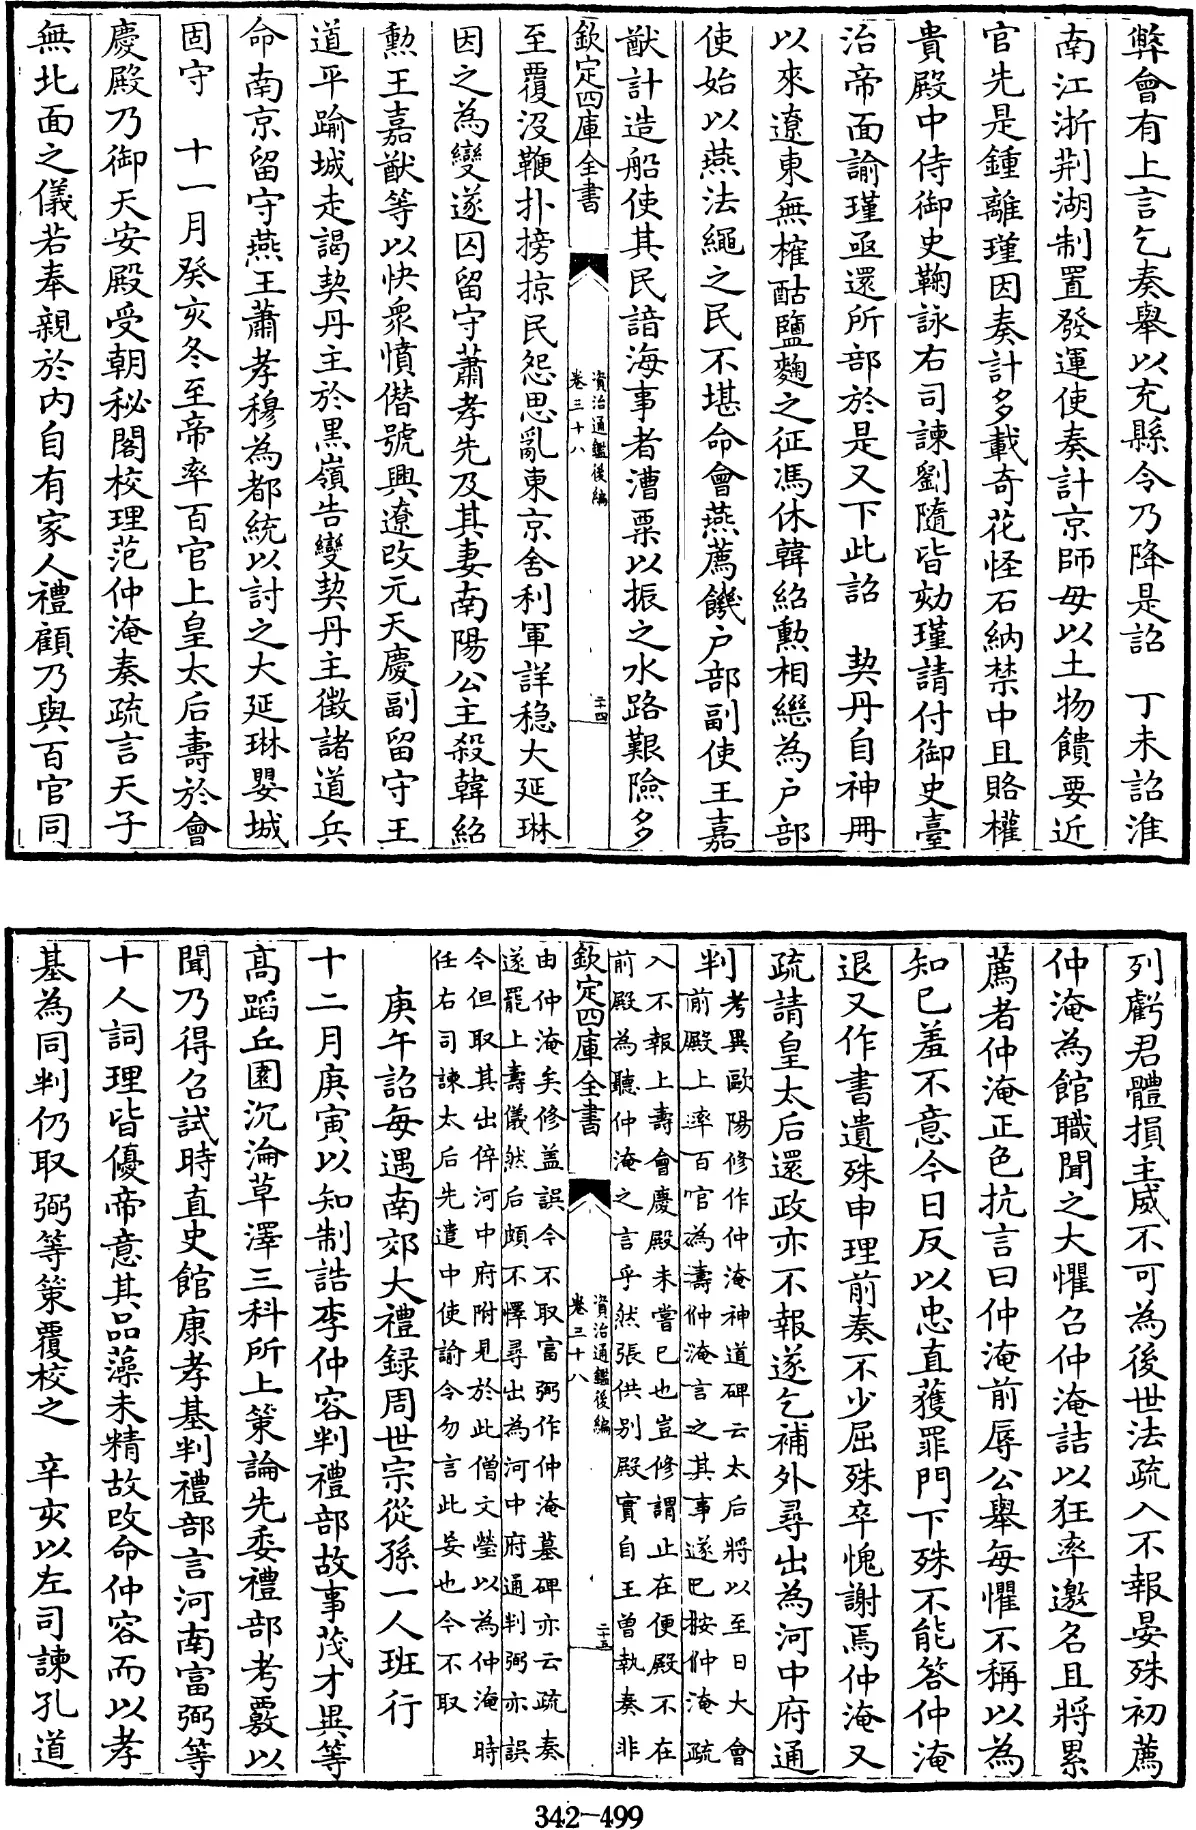 弊會有上言乞奏舉以充縣令乃降是詔　丁未詔淮
南江浙荆湖制置發運使奏計京師毋以土物饋要近
官先是鍾離瑾因奏計多載奇花怪石納禁中且賂權
貴殿中侍御史鞠詠右司諫劉隨皆劾瑾請付御史臺
治帝面諭瑾亟還所部於是又下此詔　契丹自神冊
以來遼東無榷酤鹽麴之征馮休韓紹勲相繼為户部
使始以燕法繩之民不堪命會燕薦饑户部副使王嘉
猷計造船使其民諳海事者漕粟以振之水路艱險多
欽定四庫全書
資治通鑑後編
卷三十八
二十四
至覆沒鞭扑搒掠民怨思亂東京舍利軍詳穩大延琳
因之為變遂囚留守蕭孝先及其妻南陽公主殺韓紹
勲王嘉猷等以快衆憤僭號興遼改元天慶副留守王
道平踰城走謁契丹主於黒嶺告變契丹主徵諸道兵
命南京留守燕王蕭孝穆為都統以討之大延琳嬰城
固守　十一月癸亥冬至帝率百官上皇太后壽於會
慶殿乃御天安殿受朝秘閣校理范仲淹奏疏言天子
無北面之儀若奉親於内自有家人禮顧乃與百官同
列虧君體損主威不可為後世法疏入不報晏殊初薦
仲淹為館職聞之大懼召仲淹詰以狂率邀名且將累
薦者仲淹正色抗言曰仲淹前辱公舉每懼不稱以為
知已羞不意今日反以忠直獲罪門下殊不能答仲淹
退又作書遺殊申理前奏不少屈殊卒愧謝焉仲淹又
疏請皇太后還政亦不報遂乞補外尋出為河中府通
判
考異歐陽修作仲淹神道碑云太后將以至日大會
前殿上率百官為壽仲淹言之其事遂已按仲淹疏
入不報上壽會慶殿未嘗已也豈修謂止在便殿不在
前殿為聽仲淹之言乎然張供别殿實自王曾執奏非
欽定四庫全書
資治通鑑後編
卷三十八
二十五
由仲淹矣修盖誤今不取富弼作仲淹墓碑亦云疏奏
遂罷上壽儀然后頗不懌尋出為河中府通判弼亦誤
今但取其出倅河中府附見於此僧文瑩以為仲淹時
任右司諫太后先遣中使諭令勿言此妄也今不取
庚午詔每遇南郊大禮録周世宗從孫一人班行
十二月庚寅以知制誥李仲容判禮部故事茂才異等
髙蹈丘園沉淪草澤三科所上策論先委禮部考覈以
聞乃得召試時直史館康孝基判禮部言河南富弼等
十人詞理皆優帝意其品藻未精故改命仲容而以孝
基為同判仍取弼等策覆校之　辛亥以左司諫孔道
342-499